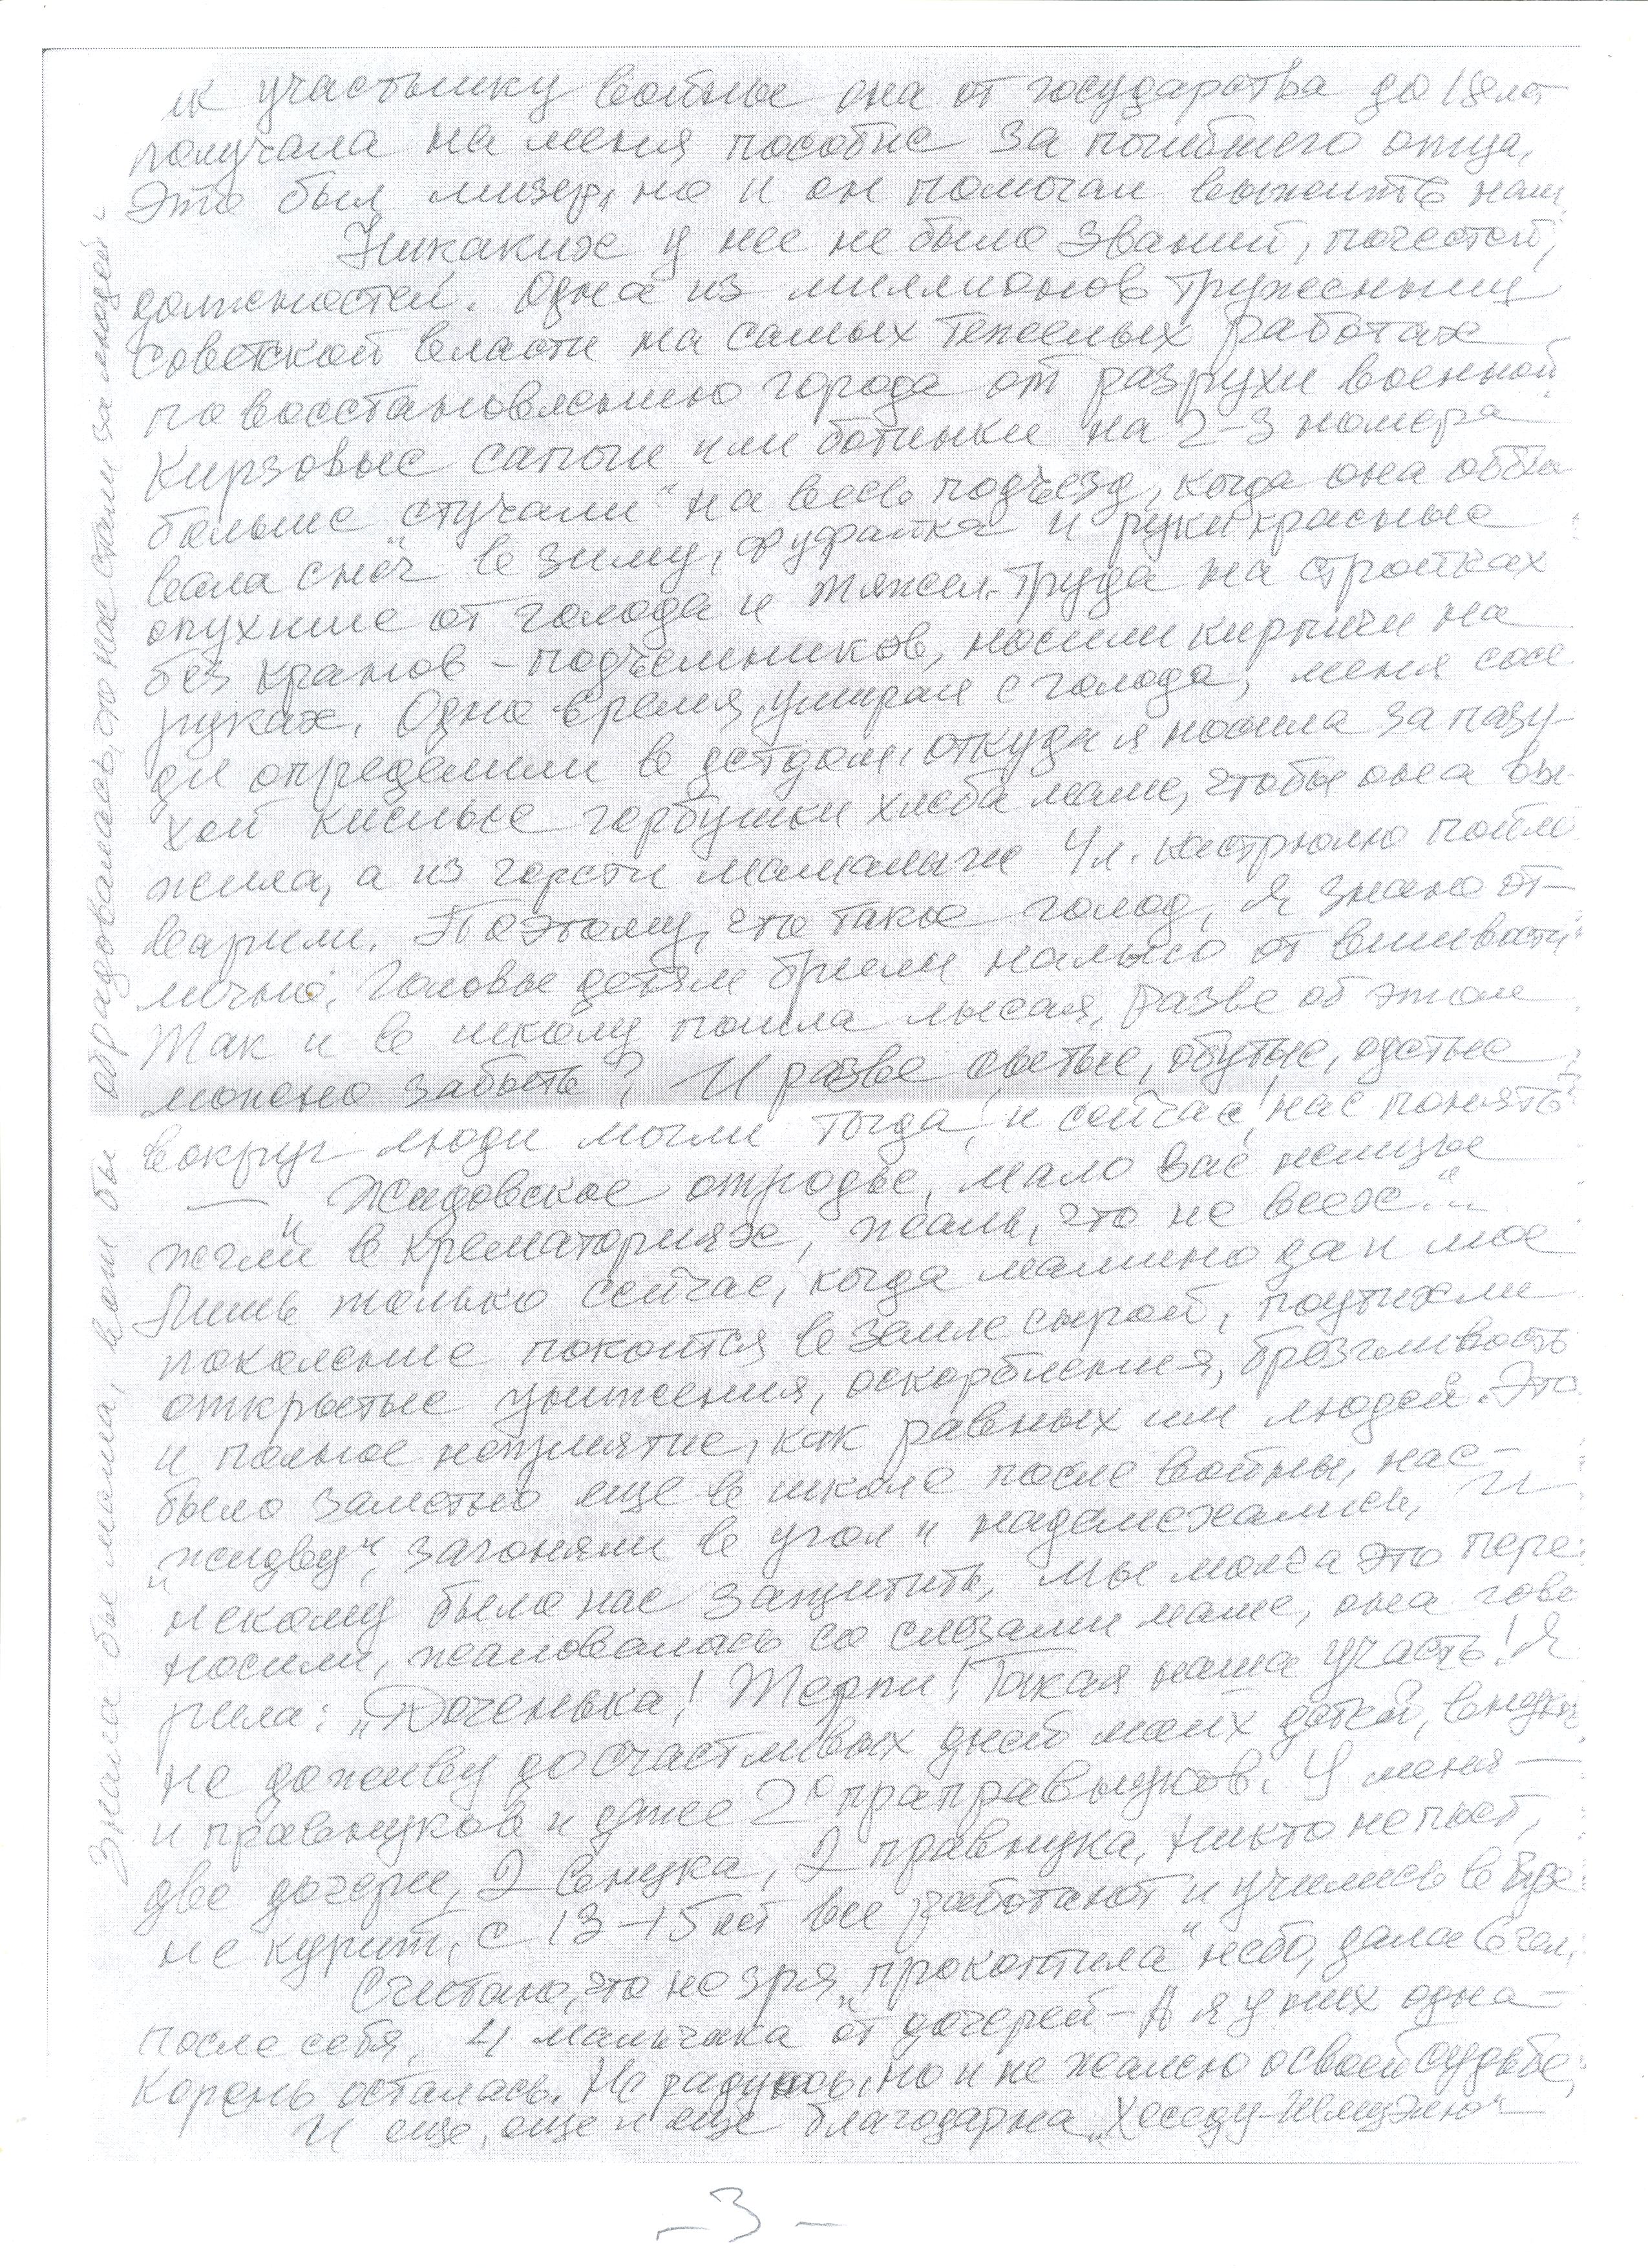 ик участнику войны она от государства до 18 лет
получала на меня пособие за погибшего отца,
Это был мизер, но и он помогал выжить нам.
Никаких у нее не было званий, почестей,
должностей. Одна из миллионов тружениц
советской власти на самых тяжелых работах
по восстановлению города от разрухи военной.
Кирзовые сапоги или ботинки на 2-3 номера
больше „стучали" на весь подъезд, когда она обби
вала снег в зиму, фуфайка и руки красные
опухшие от голода и тяжел. труда на стройках
без кранов - подъемников, носили кирпичи на
руках. Одно время, умирая с голода, меня сосе
ди определили в детдом, откуда я носила за пазу-
хой кислые горбушки хлеба маме, чтобы она вы-
жила, а из горсти мамалыги 4 л. кастрюлю пойло
варили. Поэтому, что такое голод, я знаю от-
лично. Головы детям брили налысо от вшивости
Так и в школу пошла лысая, разве об этом
можно забыть? И разве сытые, обутые, одетые
вокруг люди могли тогда! и сейчас! нас понять?
— „Жидовское отродье, мало вас немцы
жгли в крематориях, жаль, что не всех..."
Лишь только сейчас, когда мамино да и мое
поколение покоится в земле сырой, поутихли
открытые унижения, оскорбления, брезгливость
и полное неприятие, как равных им людей. Это
было заметно еще в школе после войны, нас-
„жидву", загоняли в угол и надсмехались, и
некому было нас защитить, мы молча это пере-
носили, жаловалась со слезами маме, она гово
рила: „Доченька! Терпи! Такая наша участь! Я
не доживу до счастливых дней моих детей, внуков
и правнуков и даже 2о праправнуков. У меня —
две дочери, 2 внука, 2 правнука. Никто не пьет,
не курит, с 13-15 лет все работают и учились в ВУЗе
Считаю, что не зря „прокоптила" небо, дала
после себя, 4 мальчика от дочерей - А я у них одна -
корень осталась. Не радуюсь, но и не жалею о своей судьбе,
И еще, еще и еще благодарна „Хеседу-
Знала бы мама, вот бы обрадовалась, что нас стали за людей -
- 3 -